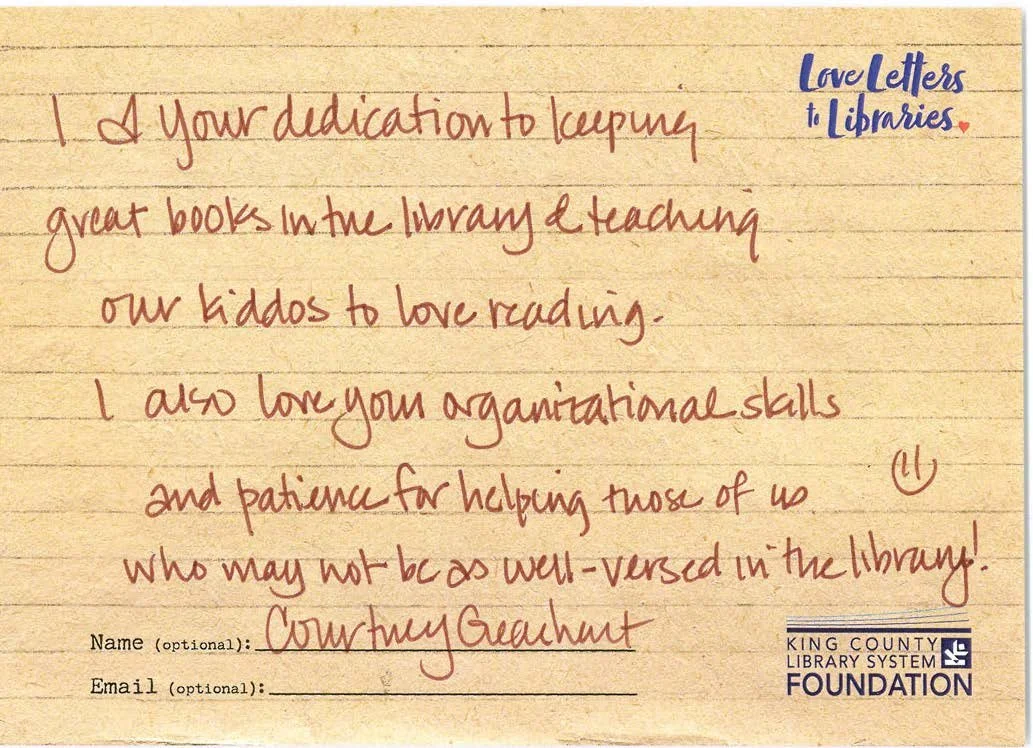 Love Letters
to Libraries
I ♡ your dedication to keeping
great books in the library & teaching
our kiddos to love reading.
I also love your organizational skills
and patience for helping those of us
who may not be as well-versed in the library!
Name (optional): Courtney Gearhart
Email (optional):
KING COUNTY
LIBRARY SYSTEM
FOUNDATION